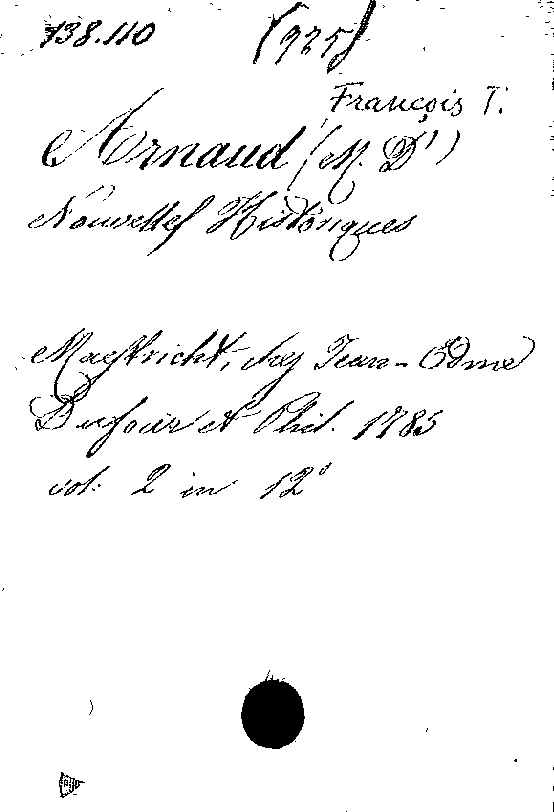 138.110 (925)
François T.
Arnaud (M. D')
Nouvelles Historiques
Maestricht, chez Jean-Edme
Dufour et Phil. 1785
vol: 2 in 12°